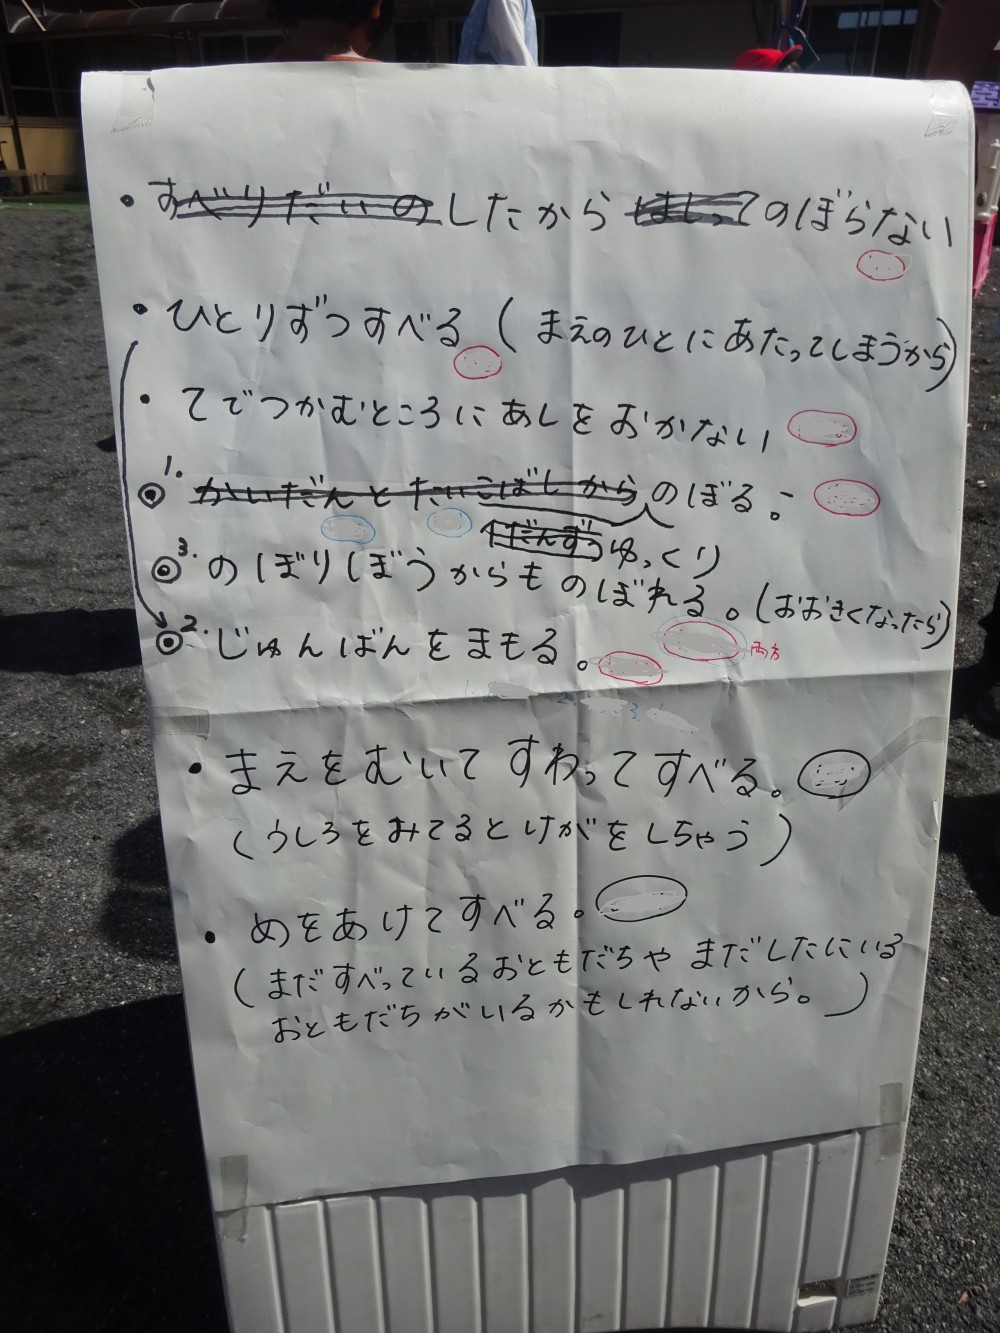 ・すべりだいの したから はしって のぼらない
・ひとりずつすべる (まえのひとにあたってしまうから)
・てでつかむところにあしをおかない
◎1. かいだんとたいこばしから のぼる。
くだんずつ ゆっくり
◎3. のぼりぼうからものぼれる。(おおきくなったら)
◎2. じゅんばんをまもる。
両方
・まえをむいて すわって すべる。
(うしろをみてるとけがをしちゃう)
・めをあけてすべる。
(まだすべっているおともだちや まだしたにいる
おともだちがいるかもしれないから。)